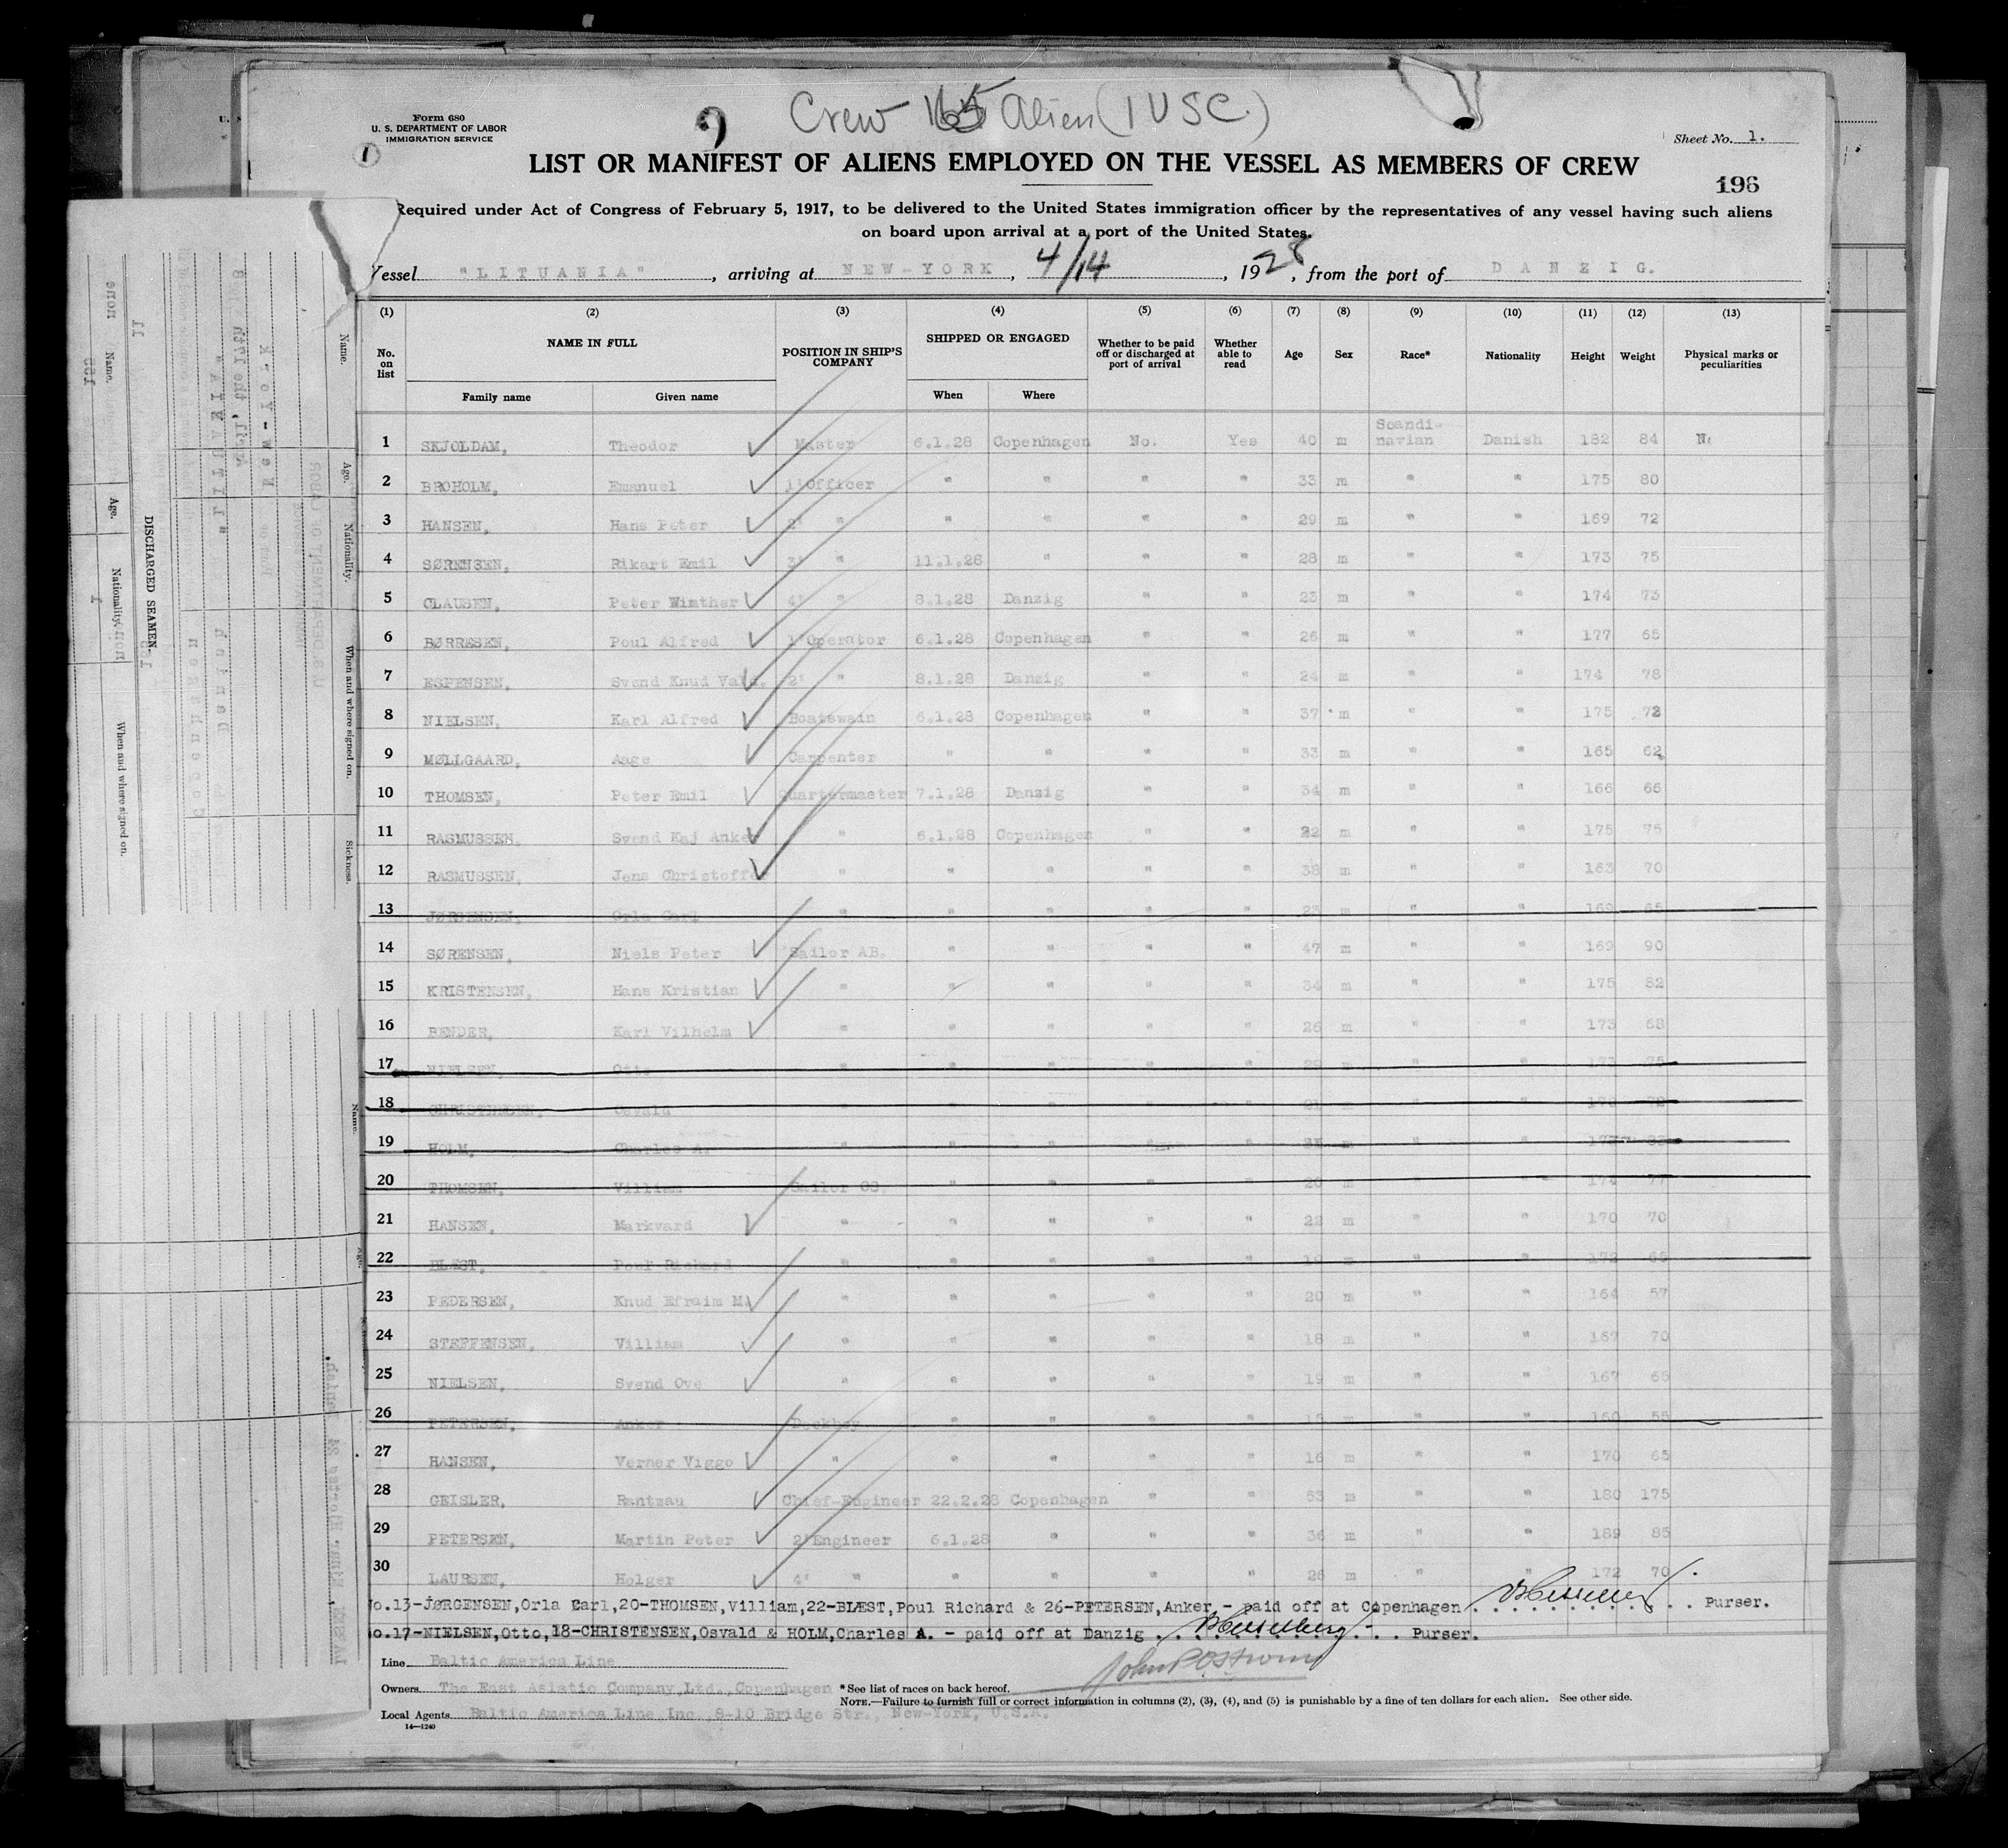 Form 680
U. S. DEPARTMENT OF LABOR
IMMIGRATION SERVICE
1
Crew 165 Alien (1 USC.)
Sheet No. 1.
LIST OR MANIFEST OF ALIENS EMPLOYED ON THE VESSEL AS MEMBERS OF CREW
196
Required under Act of Congress of February 5, 1917, to be delivered to the United States immigration officer by the representatives of any vessel having such aliens
on board upon arrival at a port of the United States.
Vessel "LITUANIA", arriving at NEW-YORK, 4/14, 1928, from the port of DANZIG.
(1) (2) (3) (4) (5) (6) (7) (8) (9) (10) (11) (12) (13)
No. on list NAME IN FULL POSITION IN SHIP'S COMPANY SHIPPED OR ENGAGED Whether to be paid off or discharged at port of arrival Whether able to read Age Sex Race* Nationality Height Weight Physical marks or peculiarities
Family name Given name When Where
1 SKJOLDAM, Theodor Master 6.1.28 Copenhagen No. Yes 40 m Scandi-navian Danish 182 84
2 BROHOLM, Emanuel 1'Officer " " " " 33 m " " 175 80
3 HANSEN, Hans Peter 2' " " " " " 29 m " " 169 72
4 SØRENSEN, Rikart Emil 3' " 11.1.28 " " " 28 m " " 173 75
5 CLAUSEN, Peter Winther 4' " 8.1.28 Danzig " " 23 m " " 174 73
6 BØRRESEN, Poul Alfred 1'Operator 6.1.28 Copenhagen " " 26 m " " 177 65
7 ESPENSEN, Svend Knud Vald. 2' " 8.1.28 Danzig " " 24 m " " 174 78
8 NIELSEN, Karl Alfred Boatswain 6.1.28 Copenhagen " " 37 m " " 175 72
9 MØLLGAARD, Aage Carpenter " " " " 33 m " " 165 62
10 THOMSEN, Peter Emil Quartermaster 7.1.28 Danzig " " 34 m " " 166 66
11 RASMUSSEN, Svend Kaj Anker " 6.1.28 Copenhagen " " 22 m " " 175 75
12 RASMUSSEN, Jens Christoffer " " " " " 38 m " " 163 70
13 JØRGENSEN, Orla Carl " " " " " 23 m " " 169 65
14 SØRENSEN, Niels Peter Sailor AB. " " " " 47 m " " 169 90
15 KRISTENSEN, Hans Kristian " " " " " 34 m " " 175 82
16 BENDER, Karl Vilhelm " " " " " 26 m " " 173 68
17 NIELSEN, Otto " " " " " m " " 173 75
18 CHRISTENSEN, Osvald " " " " " 21 m " "
19 HOLM, Charles A. " " " " " m " "
20 THOMSEN, Villiam Sailor OS. " " " " m " " 174 77
21 HANSEN, Markvard " " " " " 22 m " " 170 70
22 BLÆST, Poul Richard " " " " " 19 m " " 172 65
23 PEDERSEN, Knud Efraim M. " " " " " 20 m " " 164 57
24 STEFFENSEN, Villiam " " " " " 18 m " " 167 70
25 NIELSEN, Svend Ove " " " " " 19 m " " 167 65
26 PETERSEN, Anker Deckboy " " " " m " " 160 55
27 HANSEN, Verner Viggo " " " " " 16 m " " 170 65
28 GEISLER, Rantzau Chief-Engineer 22.2.28 Copenhagen " " 53 m " " 180 175
29 PETERSEN, Martin Peter 2'Engineer 6.1.28 " " " 36 m " " 189 85
30 LAURSEN, Holger 4' " " " " " 26 m " " 172 70
No.13-JØRGENSEN,Orla Carl,20-THOMSEN,Villiam,22-BLÆST,Poul Richard & 26-PETERSEN,Anker - paid off at Copenhagen . . . . . . . . . . . . Purser.
No.17-NIELSEN,Otto,18-CHRISTENSEN,Osvald & HOLM,Charles A. - paid off at Danzig . . . . . . . . . . . . Purser.
Line Baltic America Line
Owners The East Asiatic Company,Ltd.,Copenhagen
* See list of races on back hereof.
NOTE.—Failure to furnish full or correct information in columns (2), (3), (4), and (5) is punishable by a fine of ten dollars for each alien. See other side.
Local Agents Baltic America Line Inc. 8-10 Bridge Str., New-York, U.S.A.
14—1240
DISCHARGED SEAMEN.
Name. Age. Nationality. When and where signed on.
Name. Age. Nationality. When and where signed on. Sickness.
Name.
"LITUANIA"
April, the 17th
New-York
Copenhagen
Danish
U. S. DEPARTMENT OF LABOR
none
155
11
1